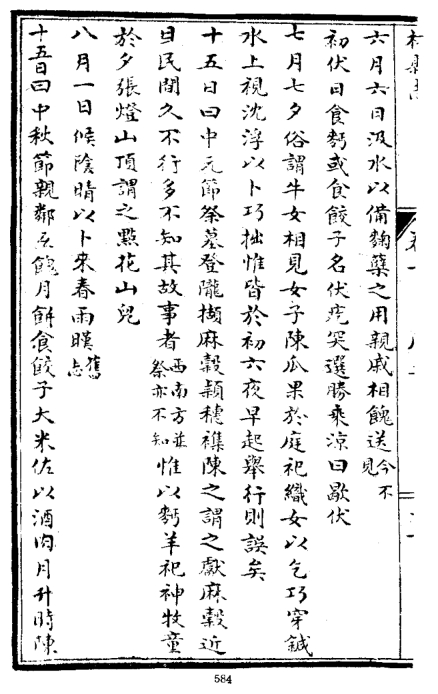 六月六日汲水以備麴糵之用親戚相餽送今不見
初伏日食麪或食餃子名伏疙突選勝乘凉曰歇伏
七月七夕俗謂牛女相見女子陳瓜果於庭祀織女以乞巧穿鍼
水上視沈浮以卜巧拙惟皆於初六夜早起舉行則誤矣
十五日曰中元節祭墓登隴擷麻穀穎穗襍陳之謂之獻麻穀近
日民間久不行多不知其故事者西南方並祭亦不知惟以麪羊祀神牧童
於夕張燈山頂謂之點花山兒
八月一日候陰晴以卜來春雨暵舊志
十五日曰中秋節親鄰互餽月餅食餃子大米佐以酒肉月升時陳
584